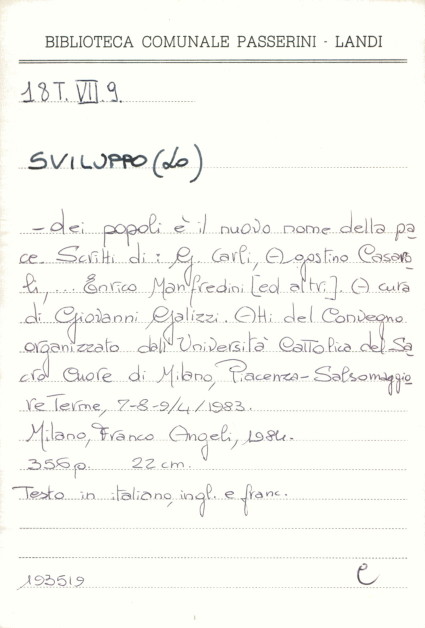 BIBLIOTECA COMUNALE PASSERINI - LANDI
18T. VII. 9.
SVILUPPO (Lo)
- dei popoli è il nuovo nome della pa
ce. Scritti di: G. Carli, Agostino Casaro
li, ... Enrico Manfredini [ed altri]. A cura
di Giovanni Galizzi. Atti del Convegno
organizzato dall'Università Cattolica del Sa
cro Cuore di Milano, Piacenza-Salsomaggio
re Terme, 7-8-9/4/1983.
Milano, Franco Angeli, 1984.
356 p. 22 cm.
Testo in italiano, ingl. e franc.
193519
e